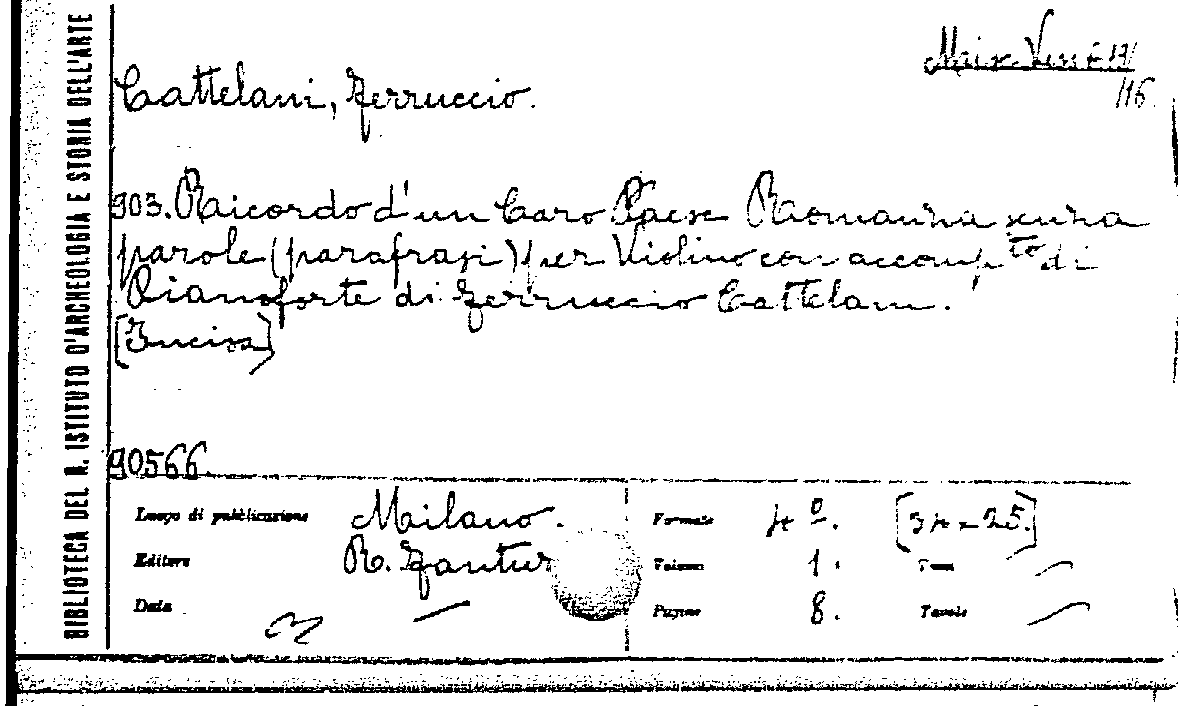 BIBLIOTECA DEL R. ISTITUTO D'ARCHEOLOGIA E STORIA DELL'ARTE
/16.
Cattelani, Ferruccio.
903. Ricordo d'un Caro Paese Romanza senza
parole (parafrasi) per Violino con accomp.to di
Pianoforte di Ferruccio Cattelani.
[Incisa]
90566
Luogo di pubblicazione Milano. Formato 4º. [34 = 25.]
Editore R. Fantuz Volume 1. Tomo —
Data — Pagine 8. Tavole —